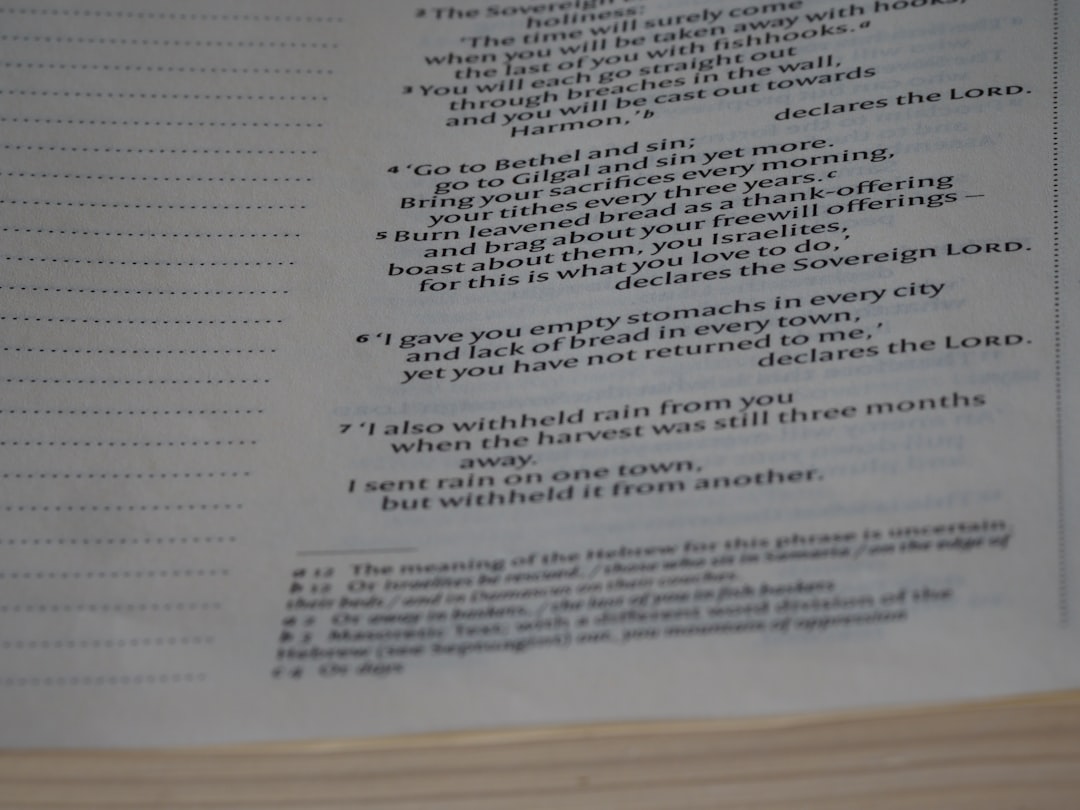 2 The Sovereign
holiness:
'The time will surely come
when you will be taken away with hooks,
the last of you with fishhooks.a
3 You will each go straight out
through breaches in the wall,
and you will be cast out towards
Harmon,'b
declares the LORD.
4 'Go to Bethel and sin;
go to Gilgal and sin yet more.
Bring your sacrifices every morning,
your tithes every three years.c
5 Burn leavened bread as a thank-offering
and brag about your freewill offerings –
boast about them, you Israelites,
for this is what you love to do,'
declares the Sovereign LORD.
6 'I gave you empty stomachs in every city
and lack of bread in every town,
yet you have not returned to me,'
declares the LORD.
7 'I also withheld rain from you
when the harvest was still three months
away.
I sent rain on one town,
but withheld it from another.
a 12 The meaning of the Hebrew for this phrase is uncertain.
b 12 Or Israelites be rescued, / those who sit in Samaria / on the edge of
their beds / and in Damascus on their couches.
a 2 Or away in baskets, / the last of you in fish baskets
b 3 Masoretic Text; with a different word division of the
Hebrew (see Septuagint) out, you mountain of oppression
c 4 Or days